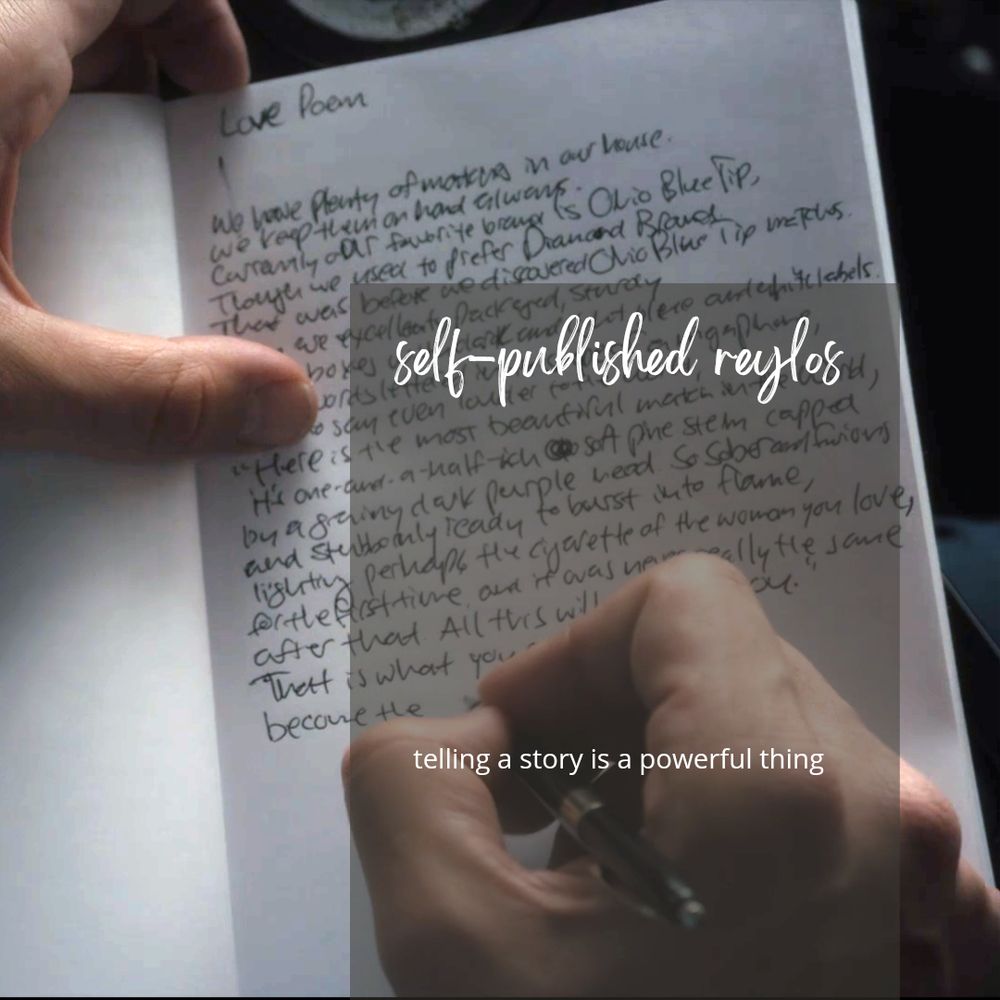 Love Poem
We have plenty of matches in our house.
We keep them on hand always.
Currently our favorite brand is Ohio Blue Tip,
Though we used to prefer Diamond Brand
That was before we discovered Ohio Blue Tip matches.
are excellently packaged, sturdy
boxes dark and blue and white labels.
words lettered megaphone,
say even louder to
"Here is the most beautiful match in world,
It's one-and-a-half-inch soft pine stem capped
by a grainy dark purple head. So sober and furious
and stubbornly ready to burst into flame,
lighting perhaps the cigarette of the woman you love,
for the first time and it was never really the same
after that. All this will you."
That is what you
become the
self-published reylos
telling a story is a powerful thing